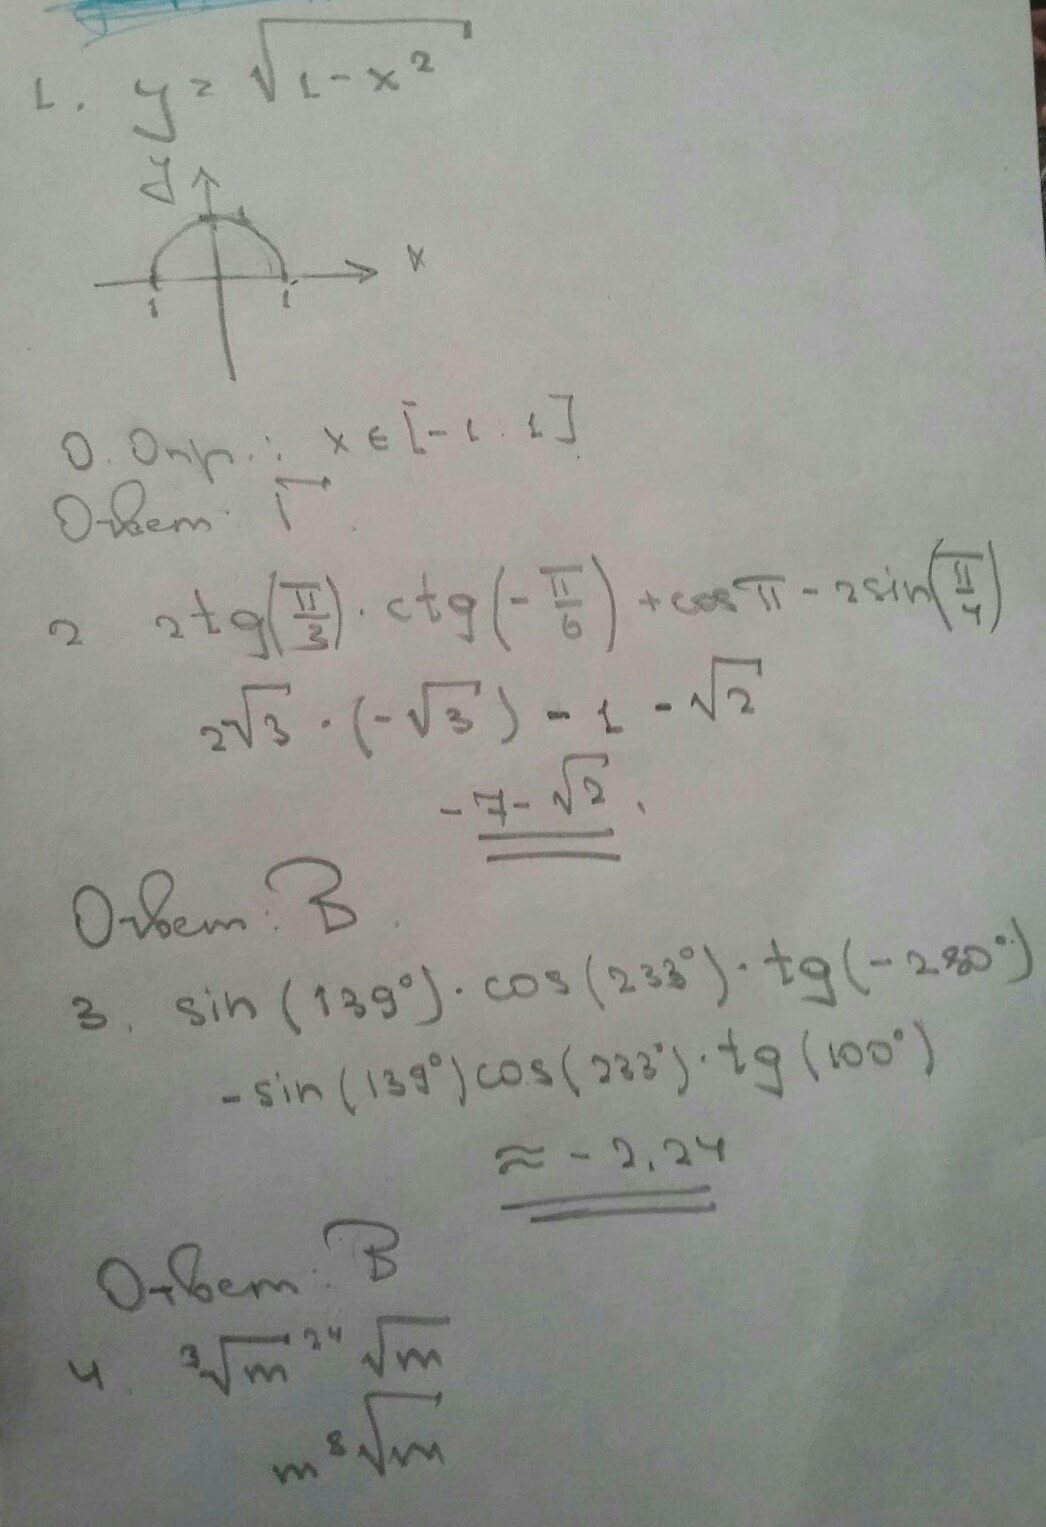 1. y = √1-x²
y
1
x
1 1
О. Опр.: x ∈ [-1. 1]
Ответ: Г.
2 2tg(π/3) · ctg(-π/6) + cos π - 2sin(π/4)
2√3 · (-√3) - 1 - √2
-7-√2.
Ответ: В.
3. sin(139°) · cos(233°) · tg(-280°)
-sin(139°)cos(233°) · tg(100°)
≈ -2,24
Ответ: В
4. ³√m ²⁴√m
m ⁸√m